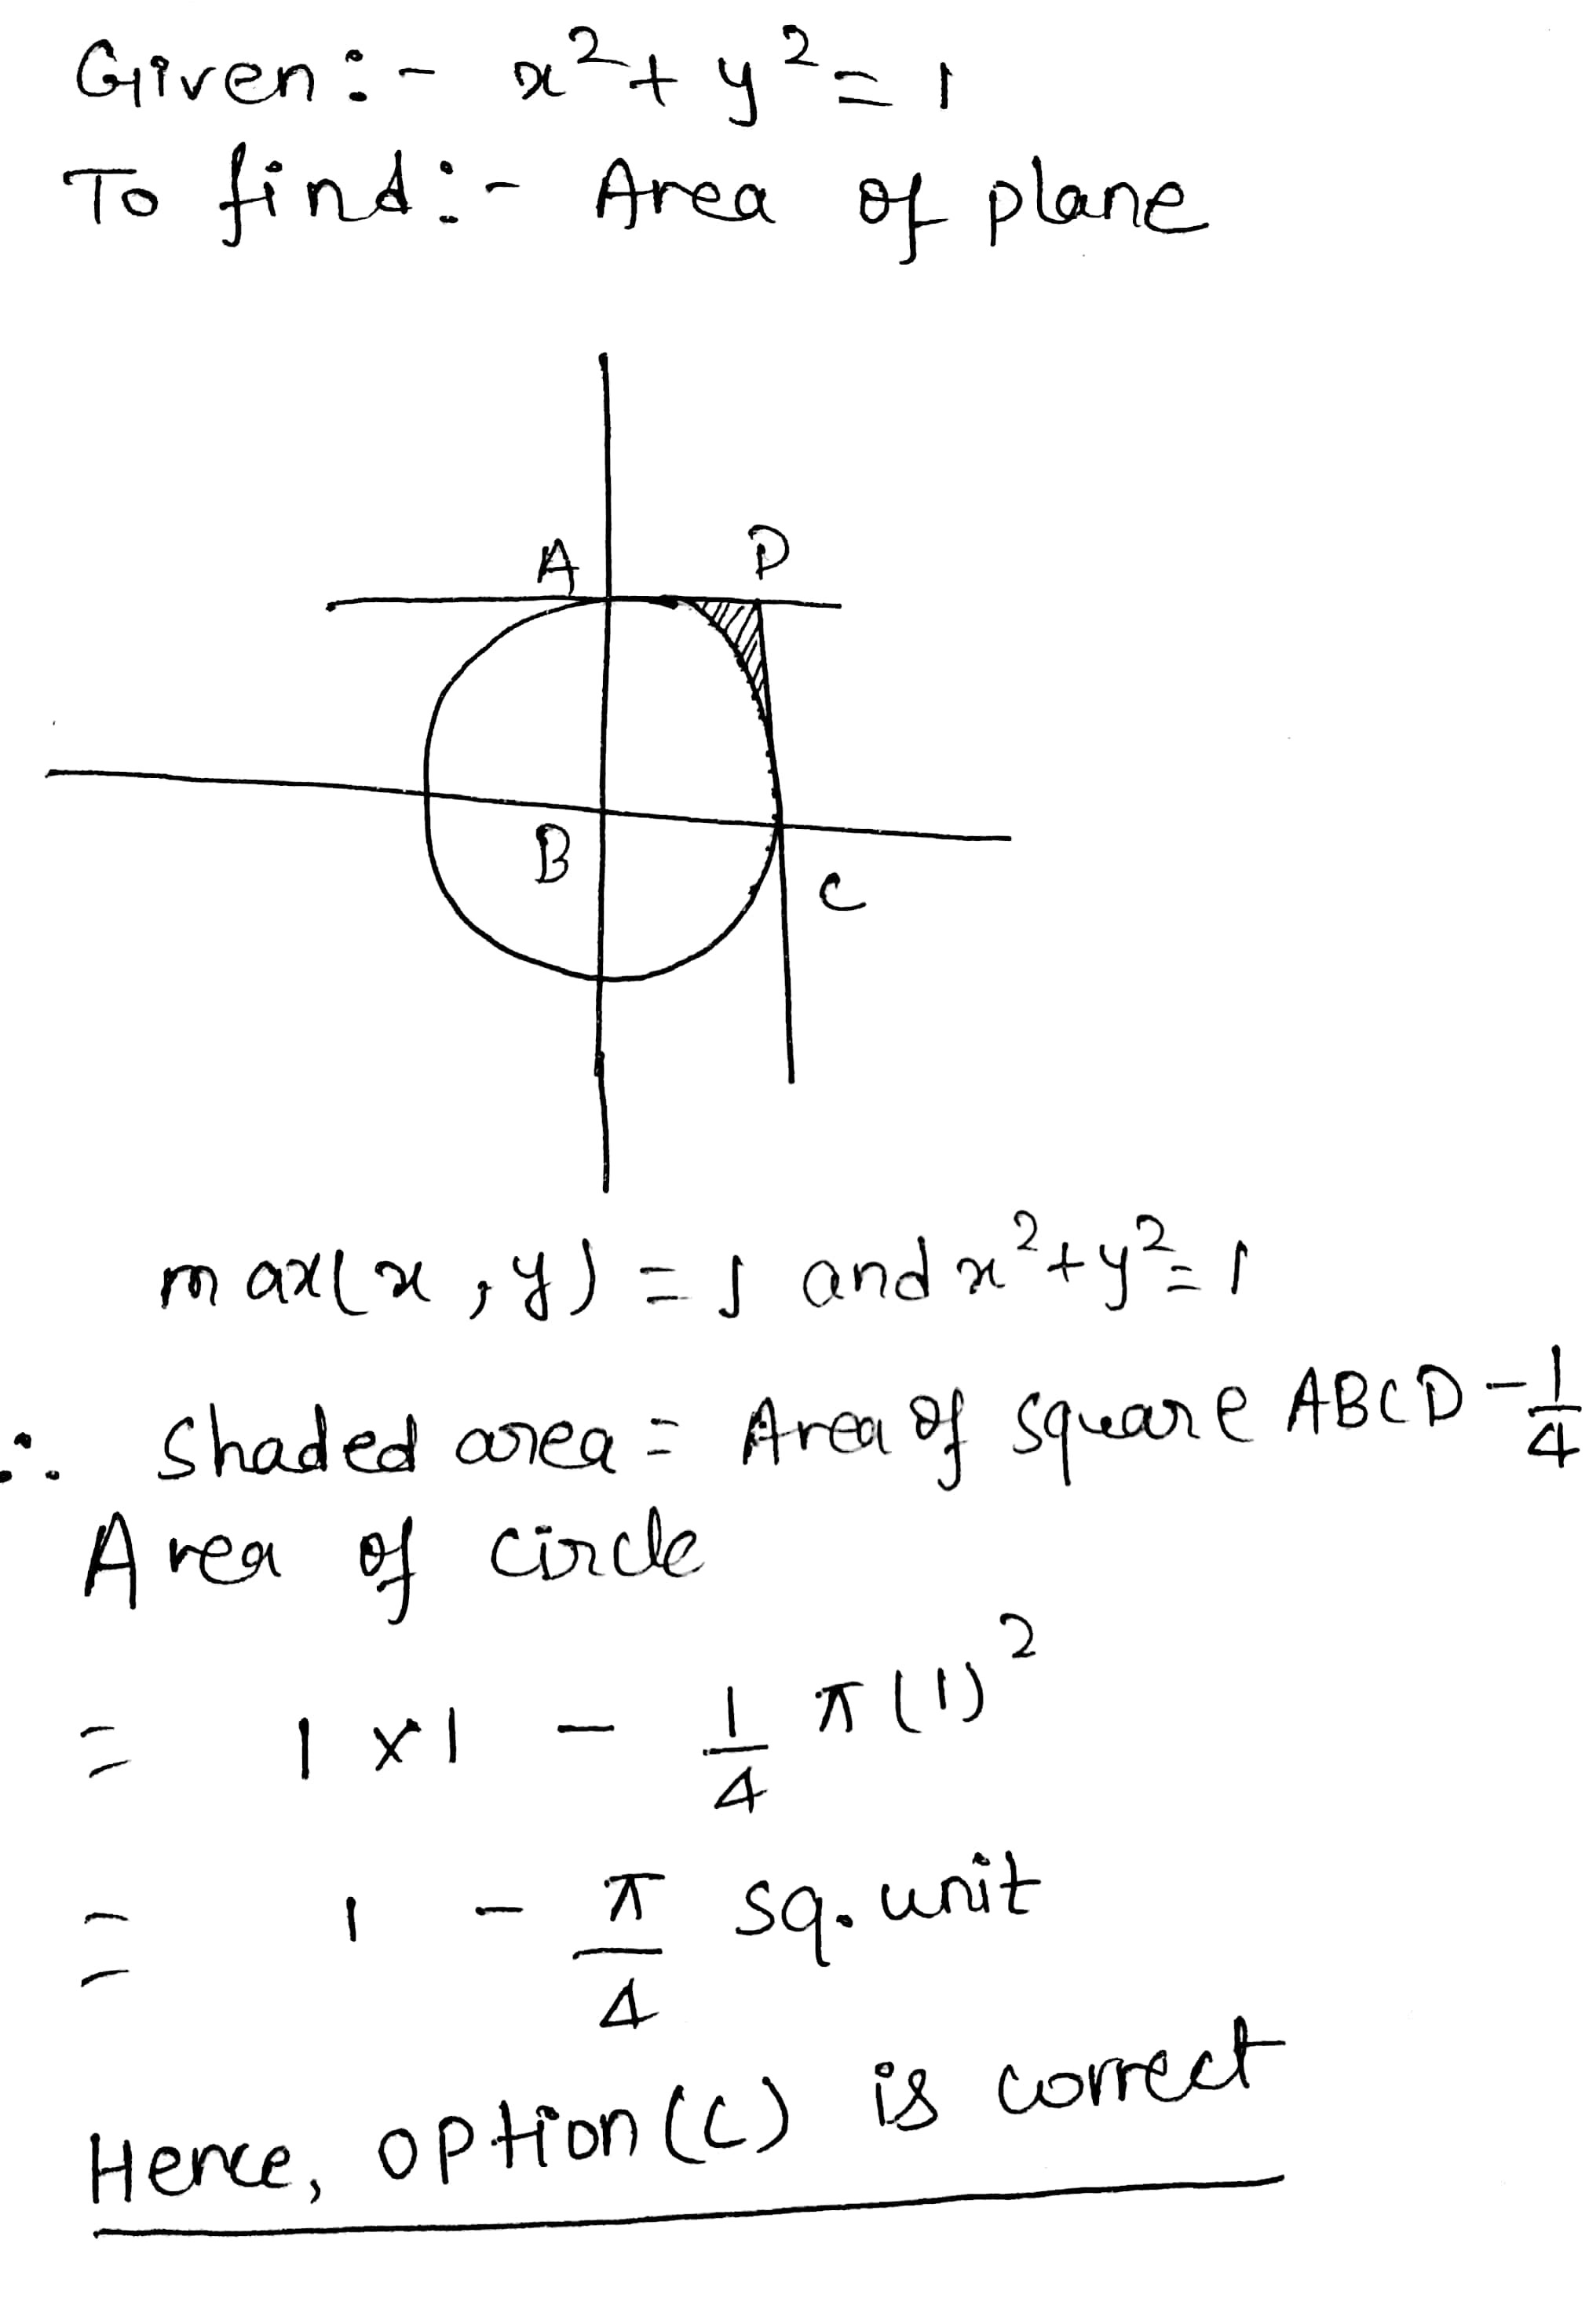 Given:- x² + y² = 1
To find:- Area of plane
A D
B
C
max(x, y) = 1 and x² + y² = 1
∴ Shaded area = Area of square ABCD - 1/4
Area of circle
= 1 × 1 - 1/4 π(1)²
= 1 - π/4 sq. unit
Hence, option (C) is correct